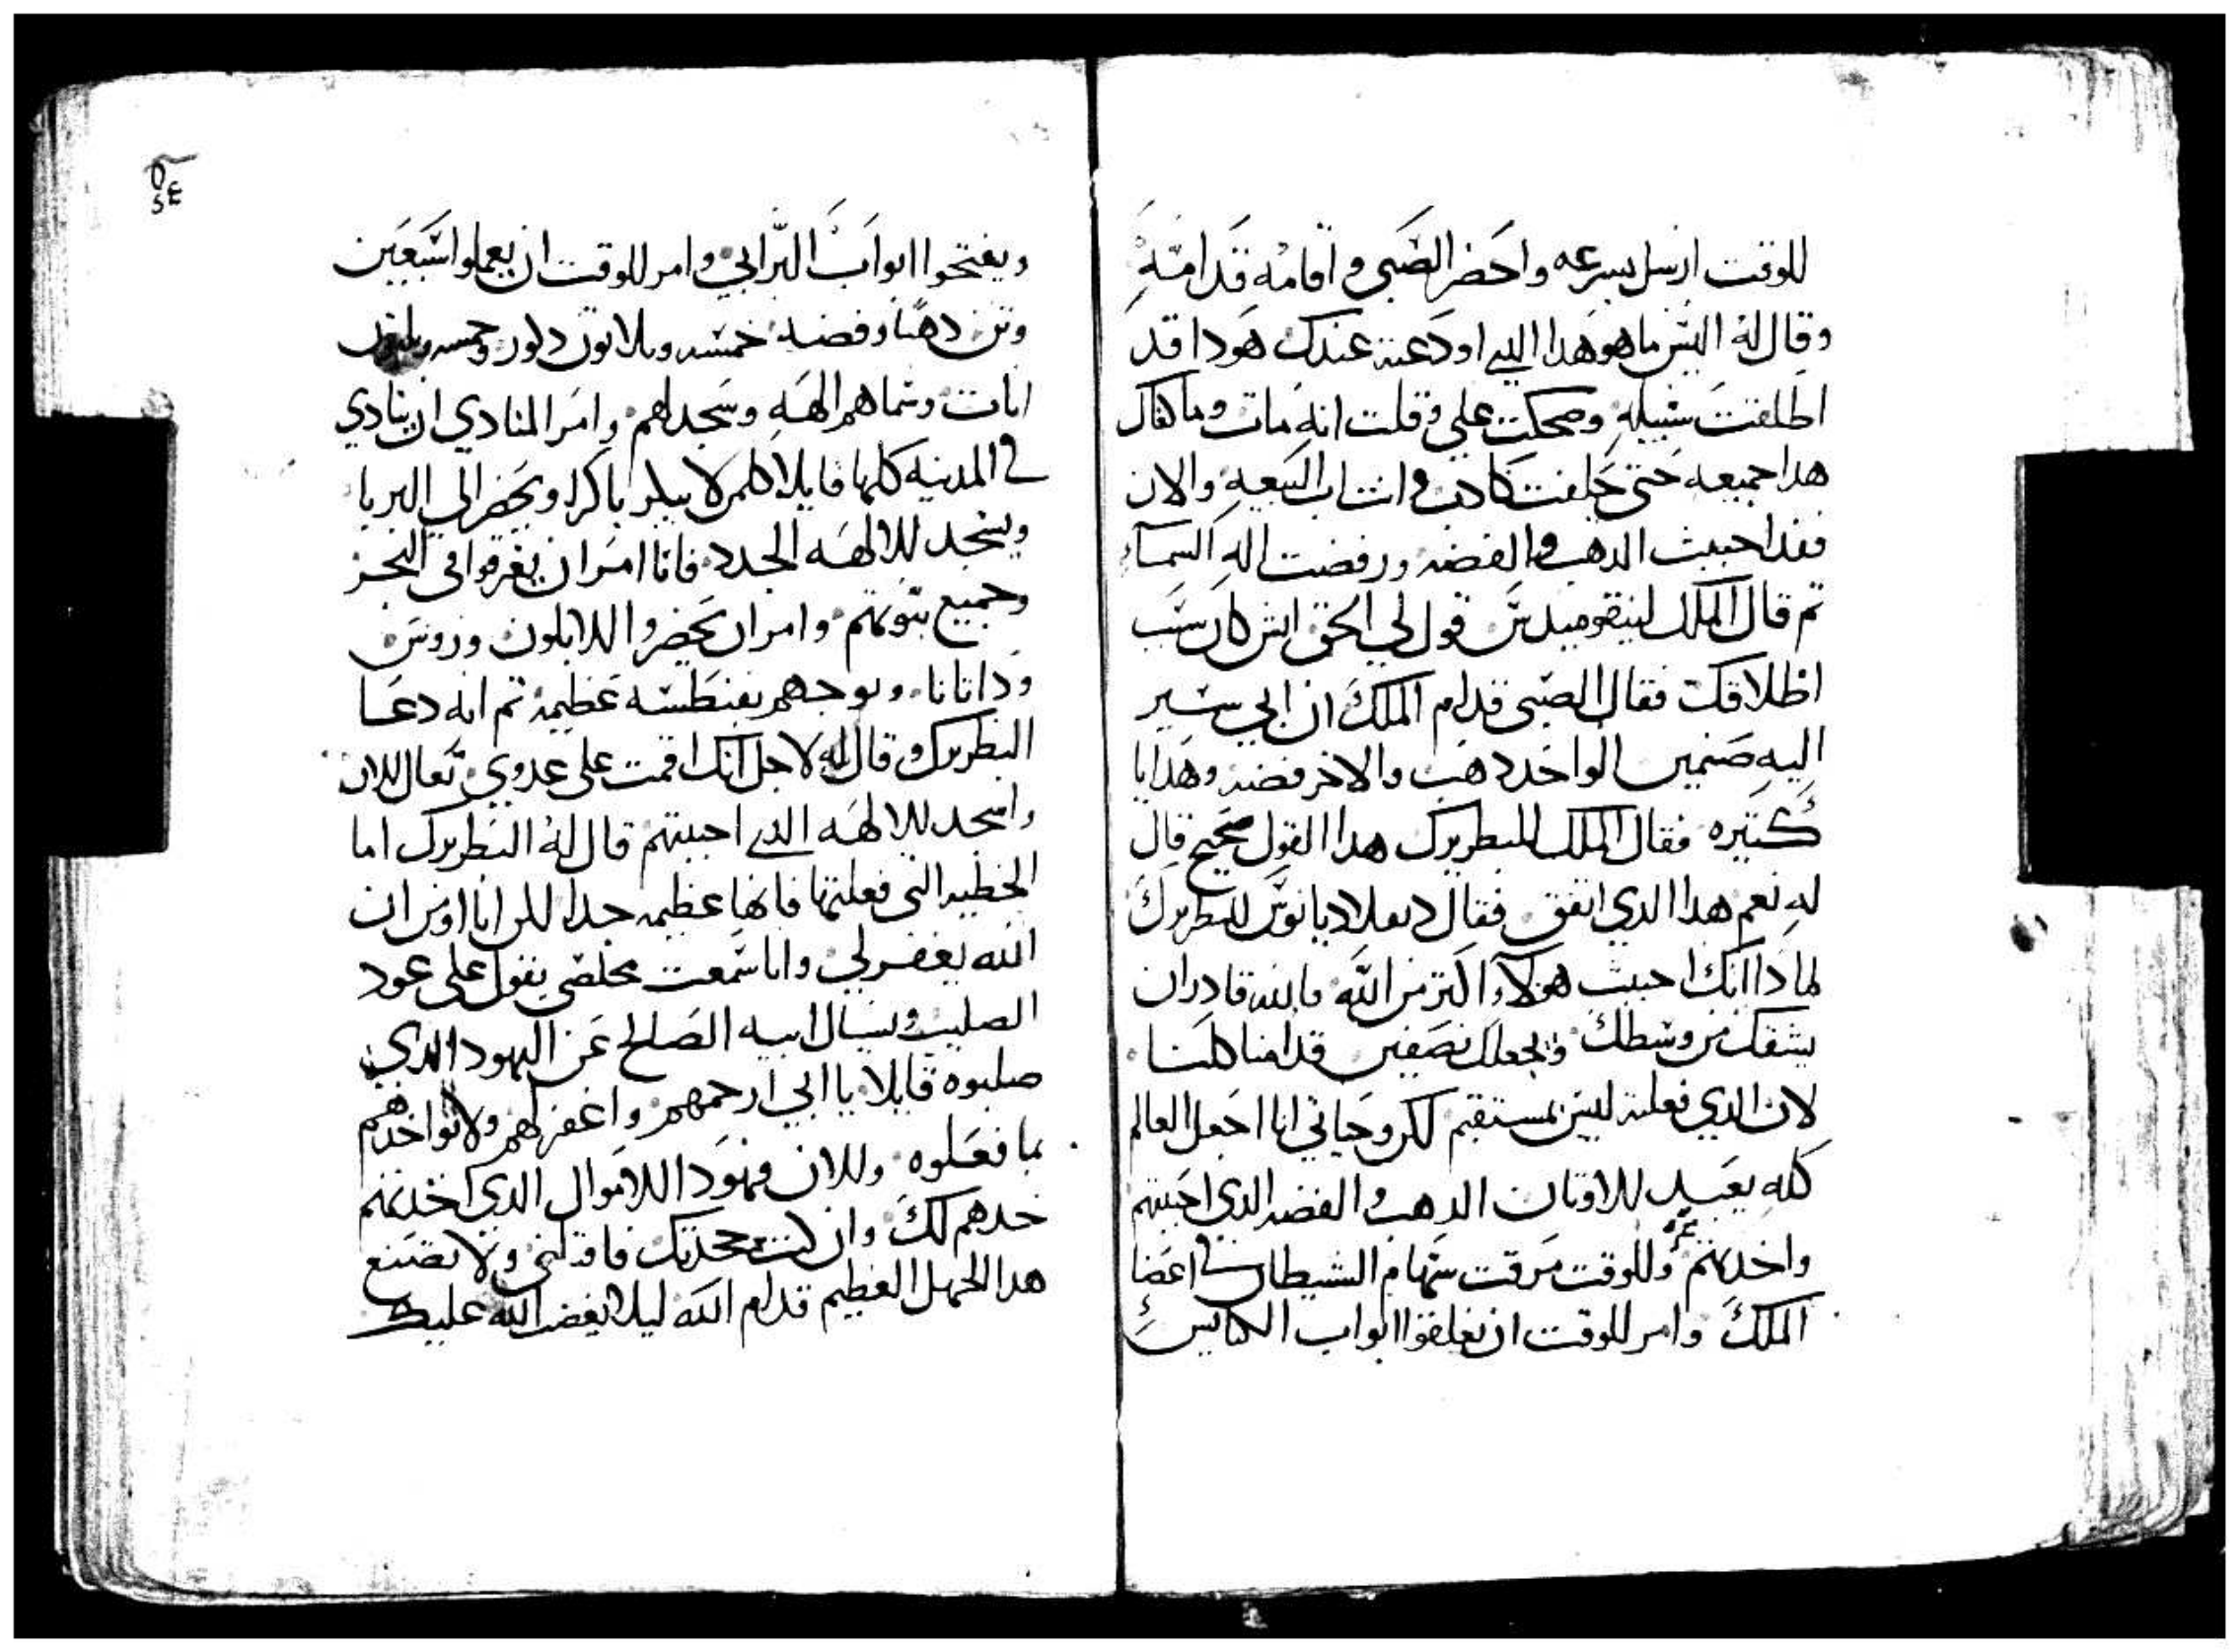 للوقت ارسل بسرعه واحضر الصبي واقامه قدامه
وقال له اليس ما هو هدا الدي اودعته عندك هودا قد
اطلقت سبيله وضحكت علي وقلت انه مات وما كفاك
هدا جميعه حتى حلفت كادب وانت اب البيعه والان
فقد احببت الدهب والفضه ورفضت اله السماء
تم قال الملك لنيقوميدس قول لي الحق ايش كان سبب
اطلاقك فقال الصبي قدام الملك ان ابي سير
اليه صنمين الواحد دهب والاخر فضه وهدايا
كتيره فقال الملك للبطريرك هدا القول صحيح قال
له نعم هدا الدي اتفق فقال دقلاديانوس للبطريرك
لمادا انك احببت هولاء اكتر من الله فالله قادر ان
يشقك من وسطك ويجعلك نصفين قدامنا كلنا
لان الدي فعلته ليس بمستقيم لكن وحياتي انا اجعل العالم
كله يعبد للاوتان الدهب والفضه الدي احببتهم
واخدتهم وللوقت مرقت سهام الشيطان في اعضا
الملك وامر للوقت ان يغلقوا ابواب الكنايس
ويفتحوا ابواب البرابي وامر للوقت ان يعملوا سبعين
وتن دهبا وفضه خمسه وتلاتون دكور وخمسه وتلتون
انات وسماهم الهه وسجد لهم وامر المنادي ان ينادي
في المدينه كلها قايلا كلمن لا يبكر باكرا ويحضر الي البربا
ويسجد للالهه الجدد فانا امر ان يغرقوا في البحر
وجميع بيوتهم وامر ان يحضروا للابلون وزوس
ودانانا وتوجهم بفنطسه عظيمه تم انه دعا
البطريرك وقال له لاجل انك اقمت على عدوي تعال للان
واسجد للالهه الدي احببتهم قال له البطريرك اما
الخطيه التي فعلتها فانها عظيمه جدا لكن انا اومن ان
الله يغفر لي وانا سمعت مخلصي يقول على عود
الصليب ويسال ابيه الصالح عن اليهود الدي
صلبوه قايلا يا ابي ارحمهم واغفر لهم ولا تواخدهم
بما فعلوه وللان فهودا للاموال الدي اخدتهم
خدهم لك وان كنت جحدتك فاقتلني ولا تصنع
هدا الجهل العظيم قدام الله ليلا يغضب الله عليك